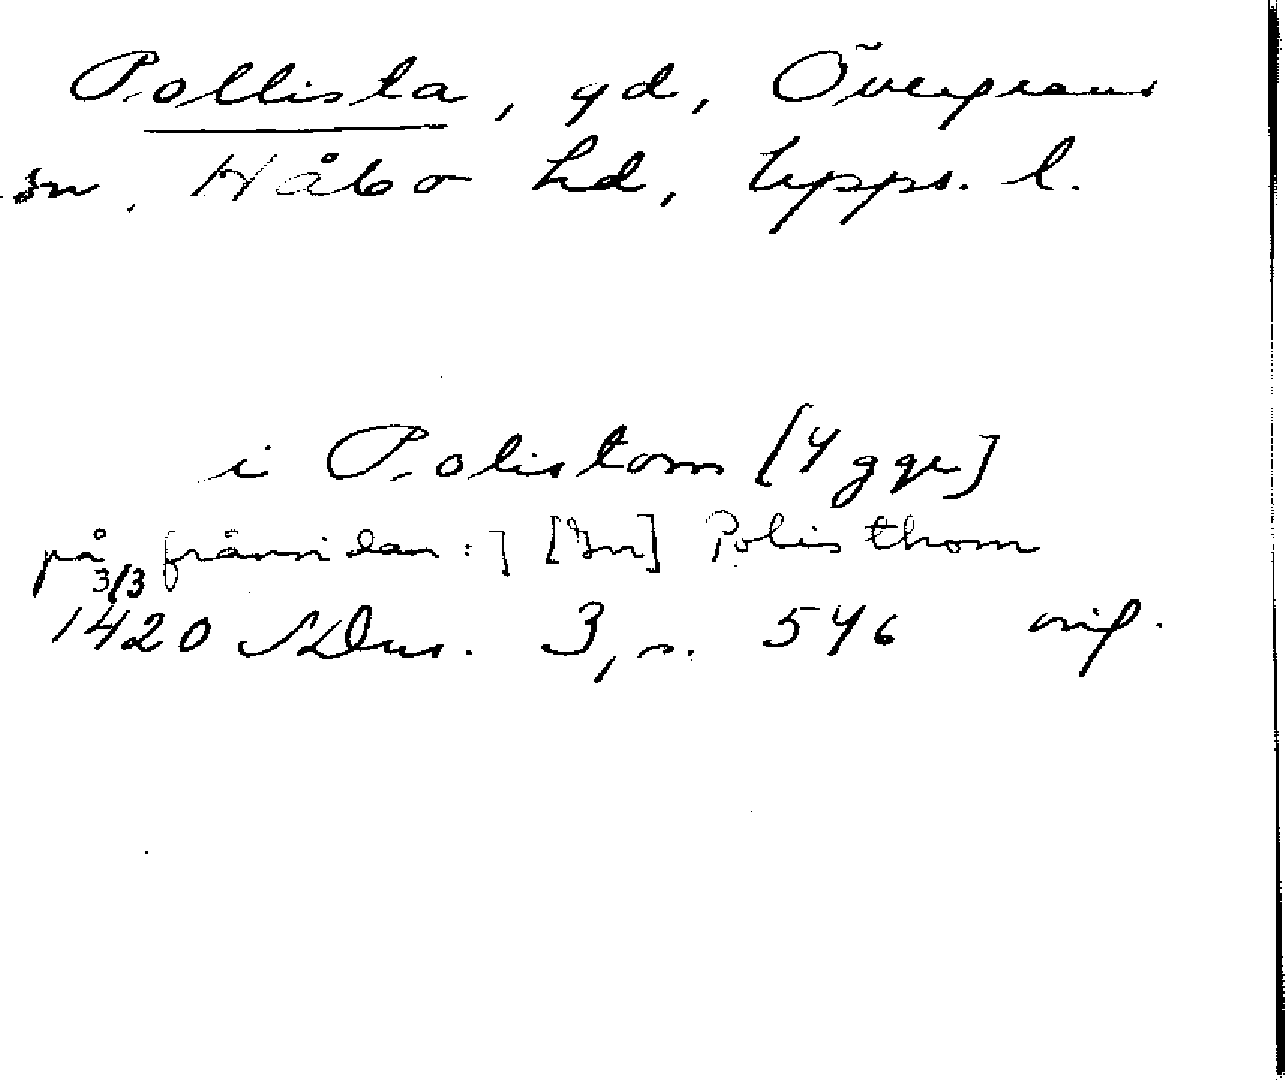 Pollista, gd, Övergrans
sn, Håbo hd, Upps. l.
i Polistom [4 ggr]
på frånsidan :] [sn] Polisthom
3/3
1420 SDns. 3, s. 546 orig.